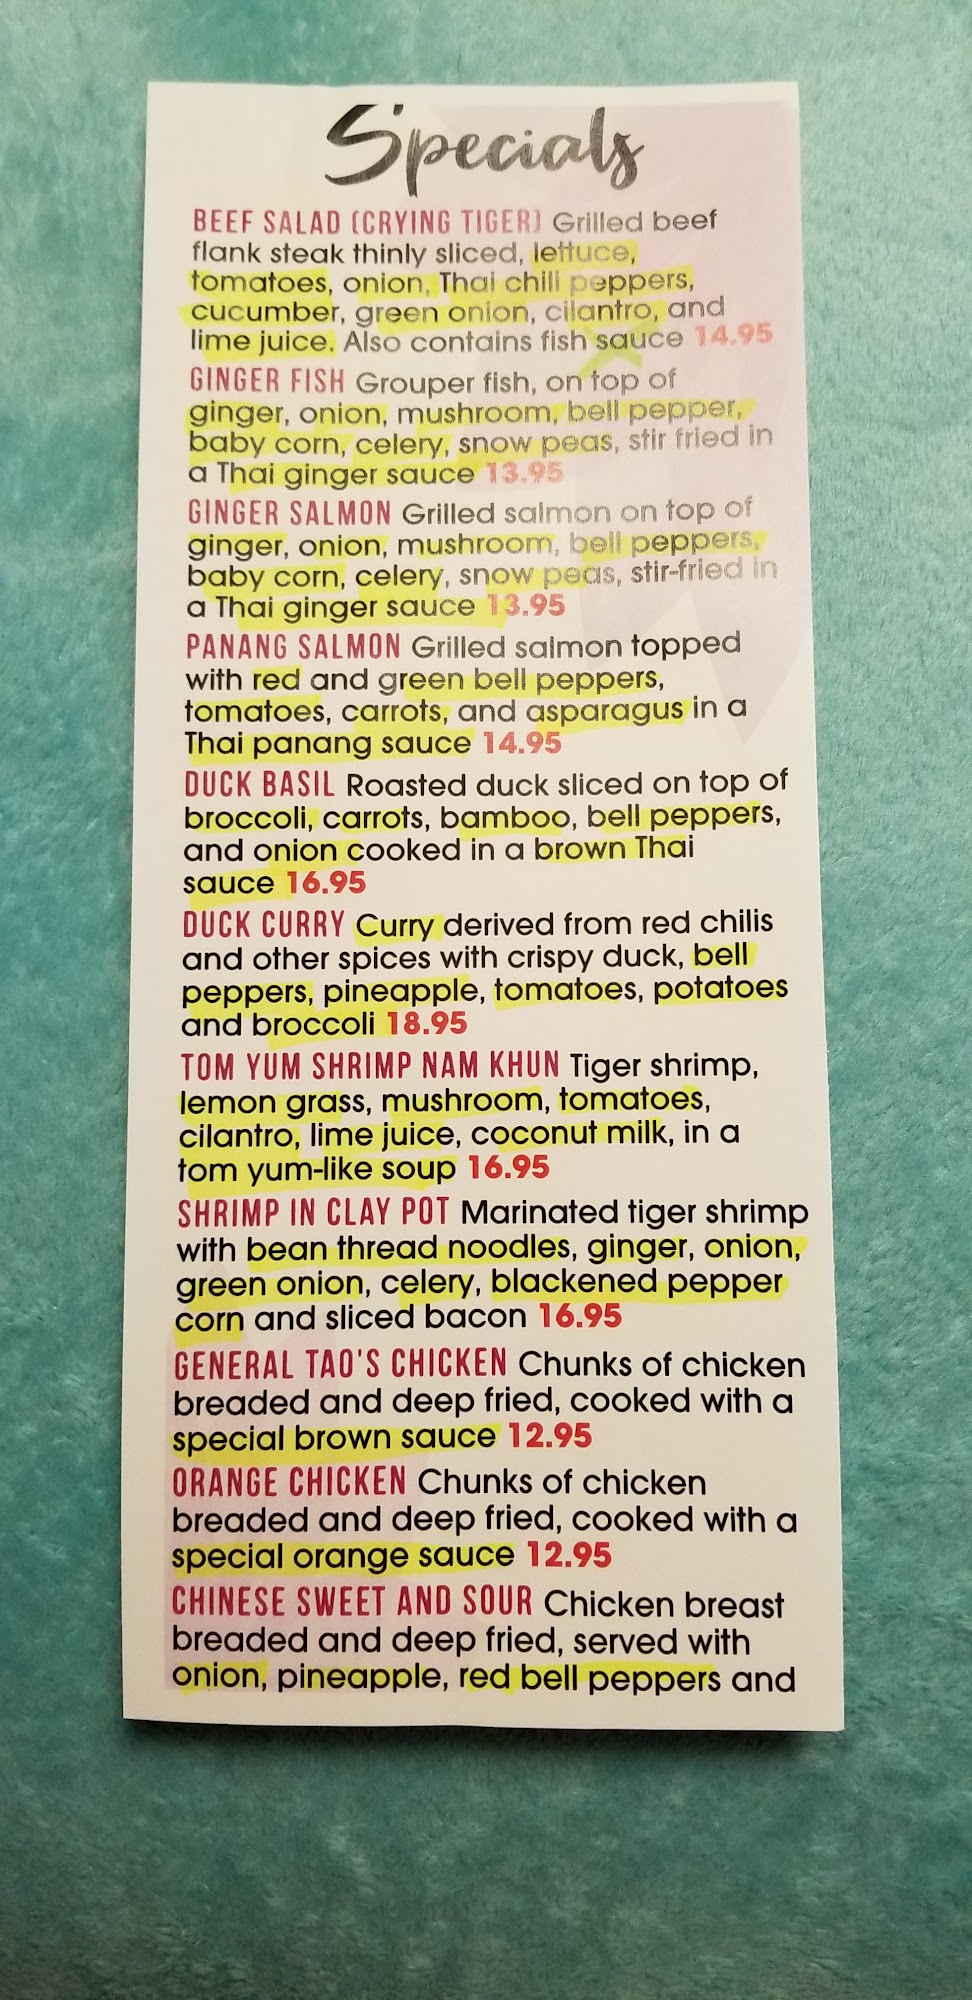 Specials
BEEF SALAD (CRYING TIGER) Grilled beef
flank steak thinly sliced, lettuce,
tomatoes, onion, Thai chili peppers,
cucumber, green onion, cilantro, and
lime juice. Also contains fish sauce 14.95
GINGER FISH Grouper fish, on top of
ginger, onion, mushroom, bell pepper,
baby corn, celery, snow peas, stir fried in
a Thai ginger sauce 13.95
GINGER SALMON Grilled salmon on top of
ginger, onion, mushroom, bell peppers,
baby corn, celery, snow peas, stir-fried in
a Thai ginger sauce 13.95
PANANG SALMON Grilled salmon topped
with red and green bell peppers,
tomatoes, carrots, and asparagus in a
Thai panang sauce 14.95
DUCK BASIL Roasted duck sliced on top of
broccoli, carrots, bamboo, bell peppers,
and onion cooked in a brown Thai
sauce 16.95
DUCK CURRY Curry derived from red chilis
and other spices with crispy duck, bell
peppers, pineapple, tomatoes, potatoes
and broccoli 18.95
TOM YUM SHRIMP NAM KHUN Tiger shrimp,
lemon grass, mushroom, tomatoes,
cilantro, lime juice, coconut milk, in a
tom yum-like soup 16.95
SHRIMP IN CLAY POT Marinated tiger shrimp
with bean thread noodles, ginger, onion,
green onion, celery, blackened pepper
corn and sliced bacon 16.95
GENERAL TAO'S CHICKEN Chunks of chicken
breaded and deep fried, cooked with a
special brown sauce 12.95
ORANGE CHICKEN Chunks of chicken
breaded and deep fried, cooked with a
special orange sauce 12.95
CHINESE SWEET AND SOUR Chicken breast
breaded and deep fried, served with
onion, pineapple, red bell peppers and